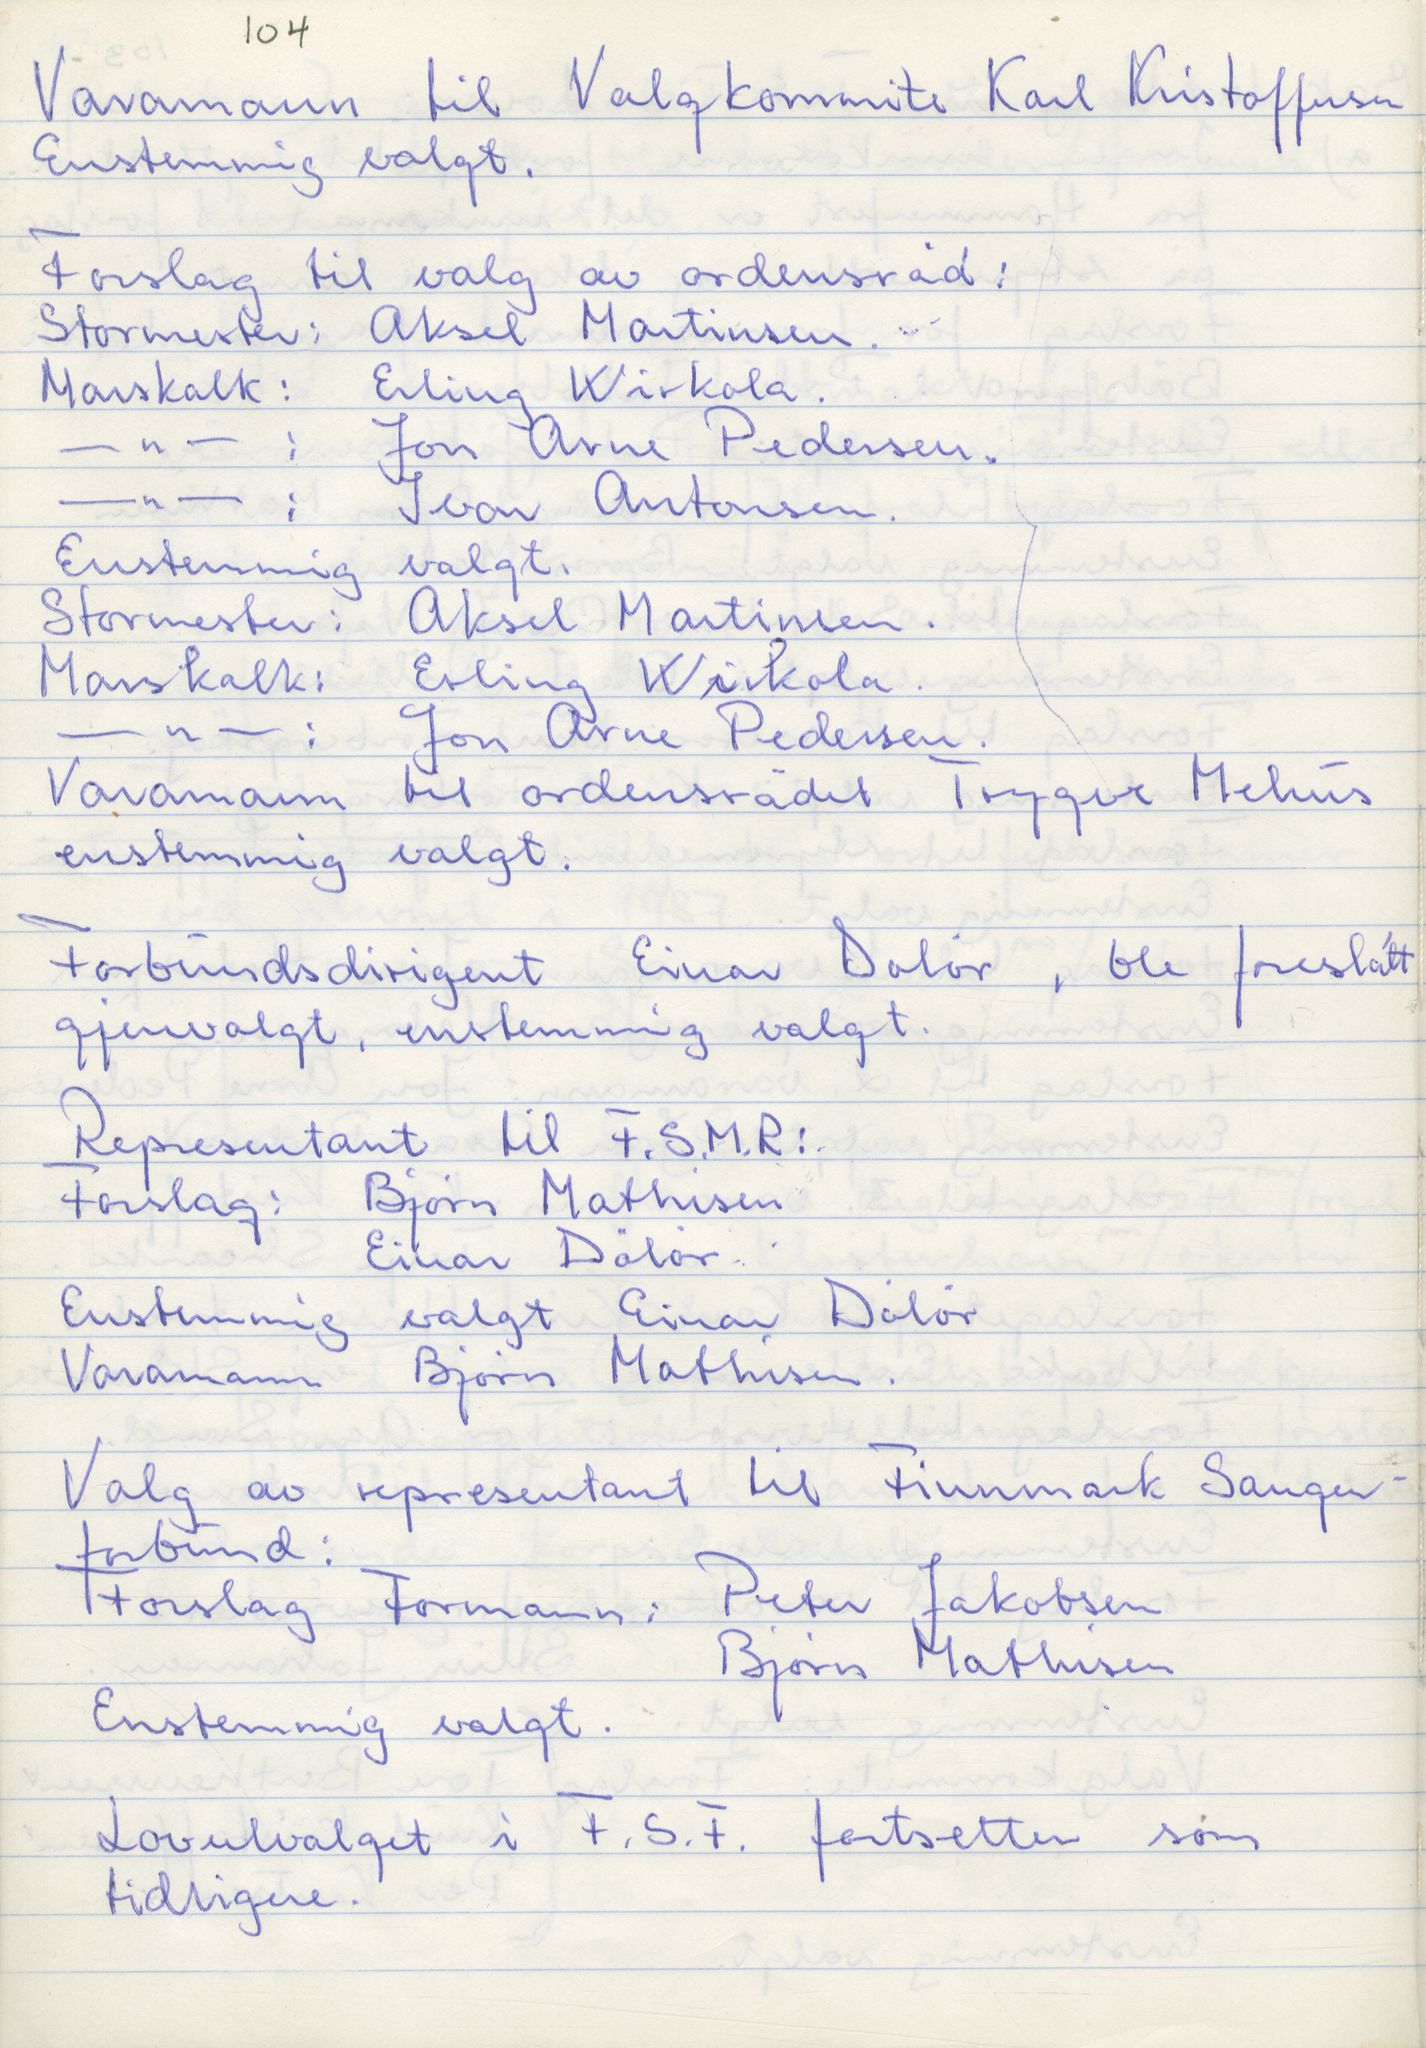 104
Varamann til Valgkommite Karl Kristoffersen
Enstemmig valgt.
Forslag til valg av ordensråd:
Stormester: Aksel Martinsen.
Marskalk: Erling Wirkola.
—"— : Jon Arne Pedersen.
—"— : Ivar Antonsen.
Enstemmig valgt.
Stormester: Aksel Martinsen.
Marskalk: Erling Wirkola.
—"— : Jon Arne Pedersen.
Varamann til ordensrådet Trygve Mehus
enstemmig valgt.
Forbundsdirigent Einar Dalör, ble foreslått
gjenvalgt, enstemmig valgt.
Representant til F.S.M.R:
Forslag: Björn Mathisen
Einar Dalör.
Enstemmig valgt Einar Dalör
Varamann Björn Mathisen.
Valg av representant til Finnmark Sanger-
forbund:
Forslag Formann: Peter Jakobsen
Björn Mathisen
Enstemmig valgt.
Lovutvalget i F.S.F. fortsetter som
tidligere.